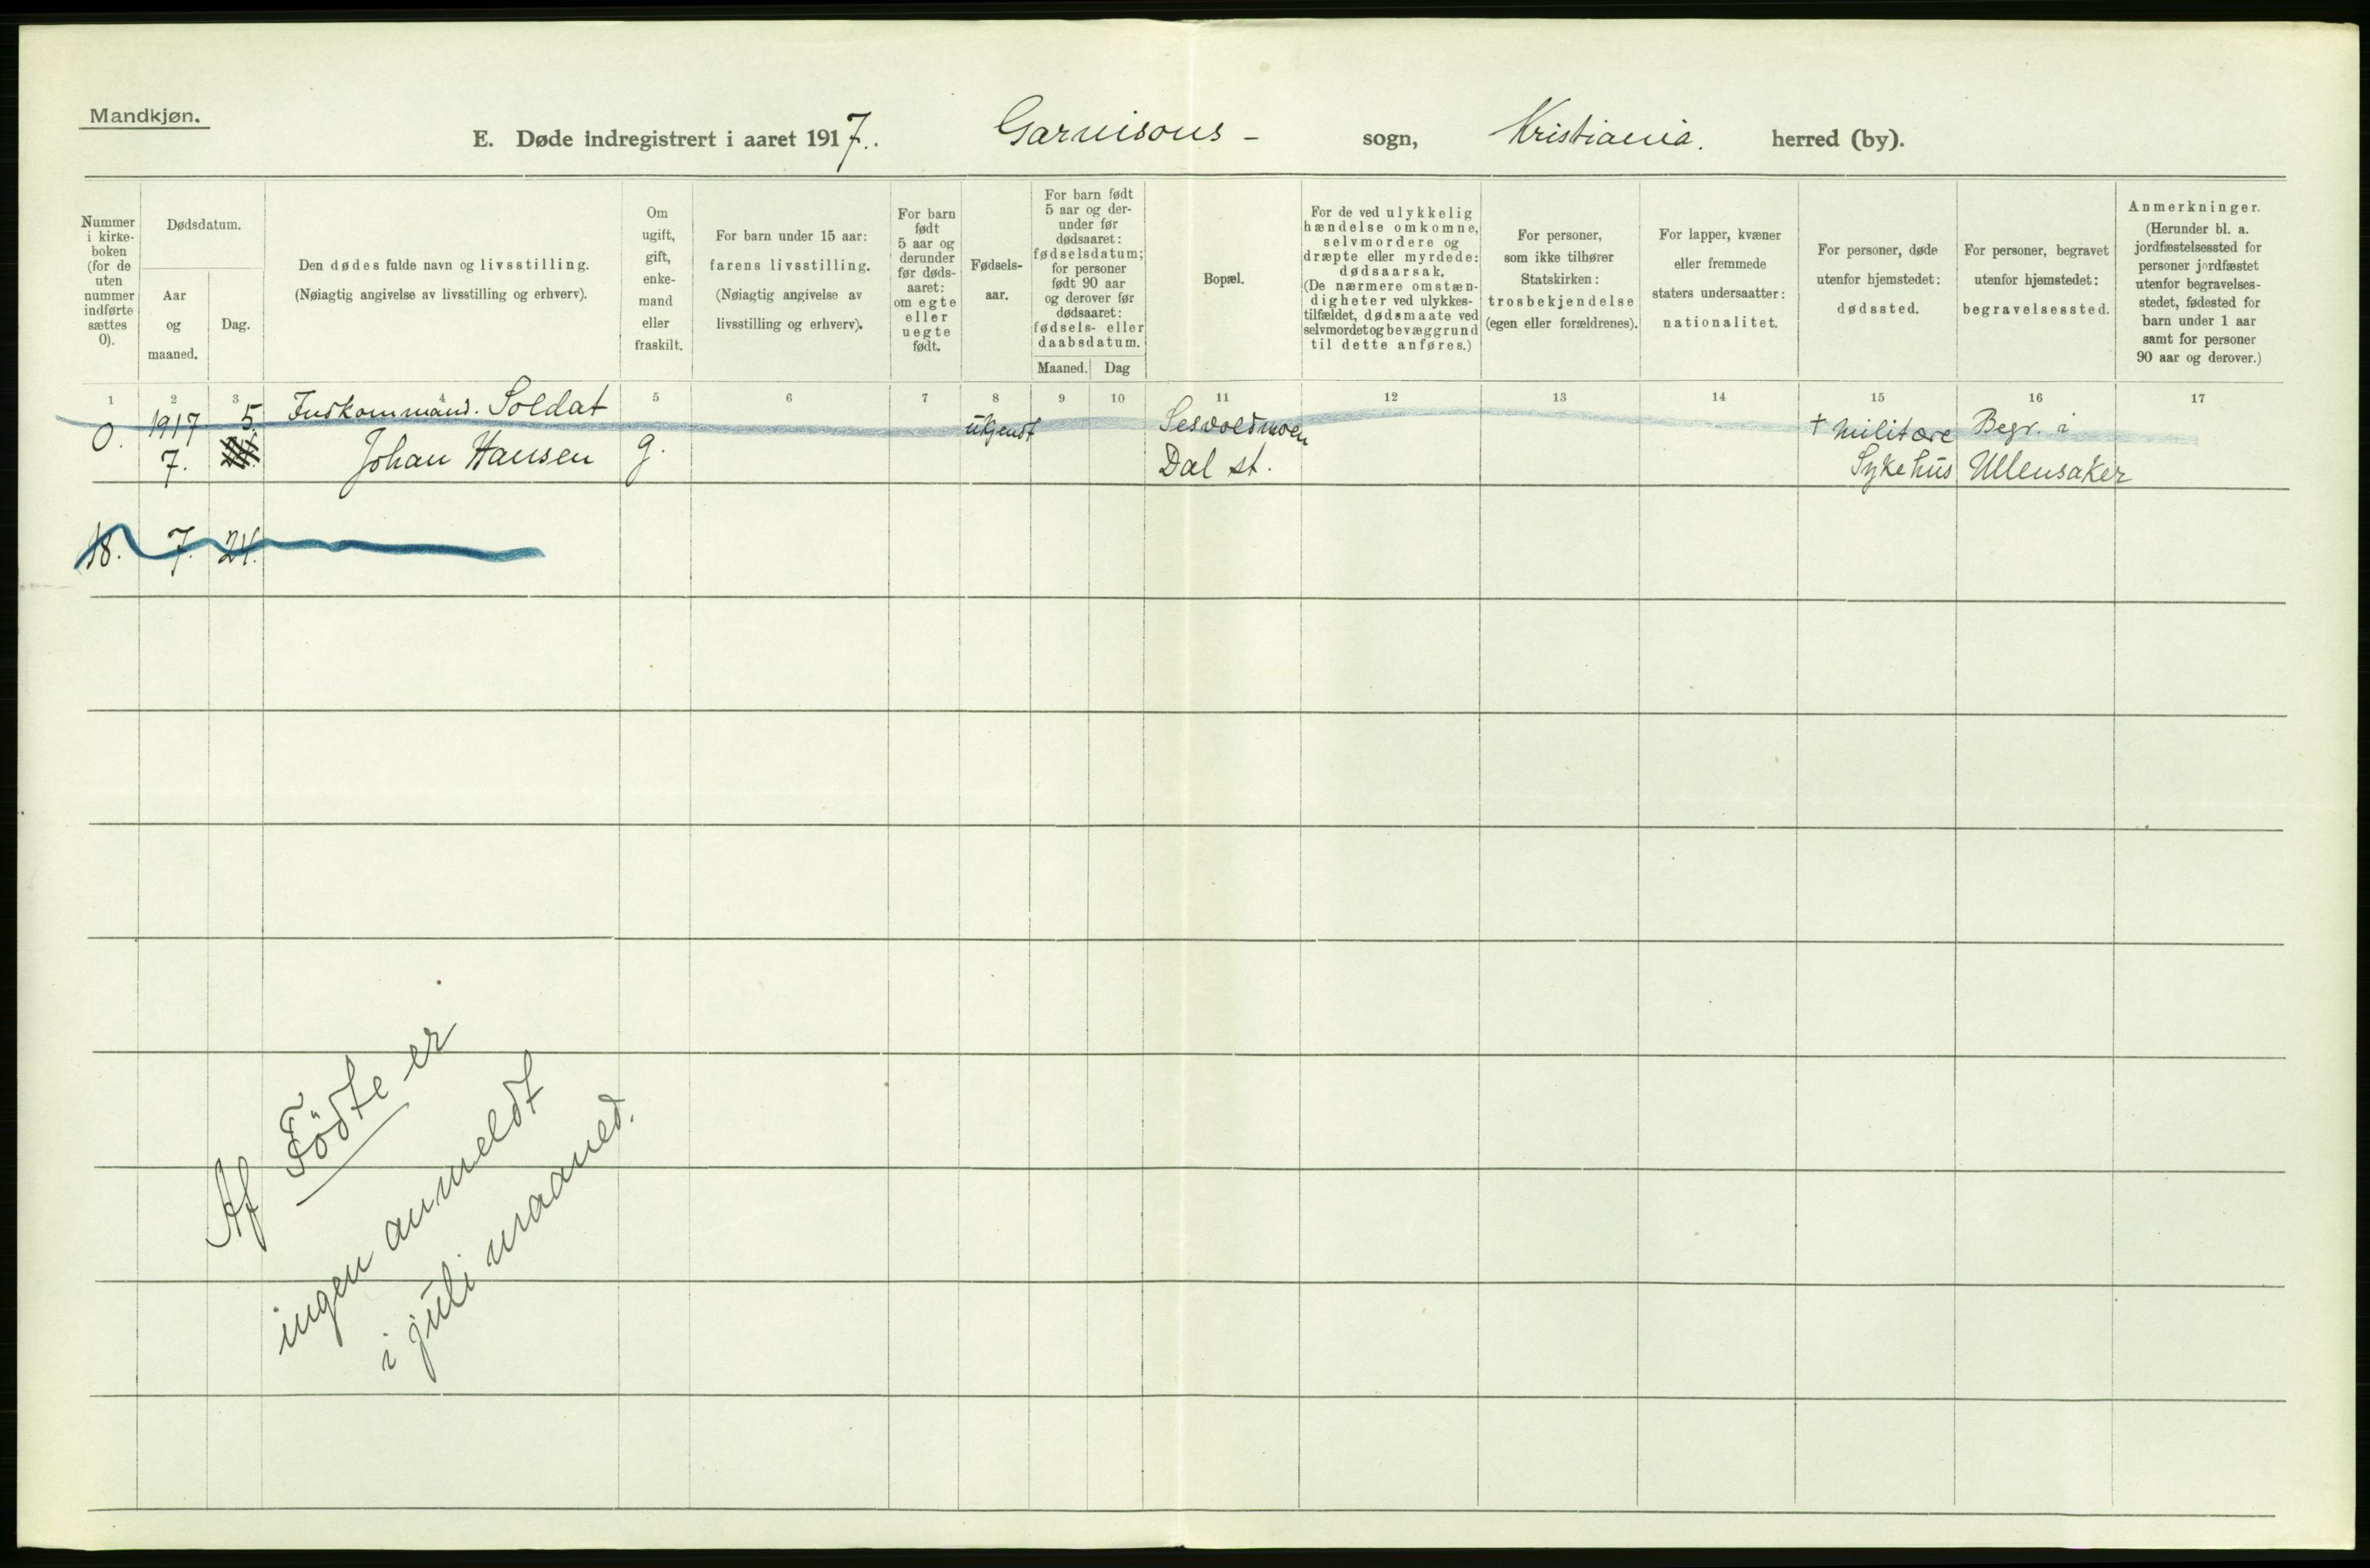 Mandkjøn.
E. Døde indregistrert i aaret 1917. Garnisons- sogn, Kristiania. herred (by).
Nummer
i kirke-
boken
(for de
uten
nummer
indførte
sættes
0).
Dødsdatum.
Aar
og
maaned.
Dag.
Den dødes fulde navn og livsstilling.
(Nøiagtig angivelse av livsstilling og erhverv).
Om
ugift,
gift,
enke-
mand
eller
fraskilt.
For barn under 15 aar:
farens livsstilling.
(Nøiagtig angivelse av
livsstilling og erhverv).
For barn
født
5 aar og
derunder
før døds-
aaret:
om egte
eller
uegte
født.
Fødsels-
aar.
For barn født
5 aar og der-
under før
dødsaaret:
fødselsdatum;
for personer
født 90 aar
og derover før
dødsaaret:
fødsels- eller
daabsdatum.
Maaned. Dag
Bopæl.
For de ved ulykkelig
hændelse omkomne,
selvmordere og
dræpte eller myrdede:
dødsaarsak.
(De nærmere omstæn-
digheter ved ulykkes-
tilfældet, dødsmaate ved
selvmordet og bevæggrund
til dette anføres.)
For personer,
som ikke tilhører
Statskirken:
trosbekjendelse
(egen eller forældrenes).
For lapper, kvæner
eller fremmede
staters undersaatter:
nationalitet.
For personer, døde
utenfor hjemstedet:
dødssted.
For personer, begravet
utenfor hjemstedet:
begravelsessted.
Anmerkninger.
(Herunder bl. a.
jordfæstelsessted for
personer jordfæstet
utenfor begravelses-
stedet, fødested for
barn under 1 aar
samt for personer
90 aar og derover.)
1 2 3 4 5 6 7 8 9 10 11 12 13 14 15 16 17
0. 1917 5. Indkommand. Soldat ukjendt Sesvoldmoen † militære Begr. i
7. Johan Hansen g. Dal st. Sykehus Ullensaker
18. 7. 24.
Af Födte er
ingen anmeldt
i juli maaned.